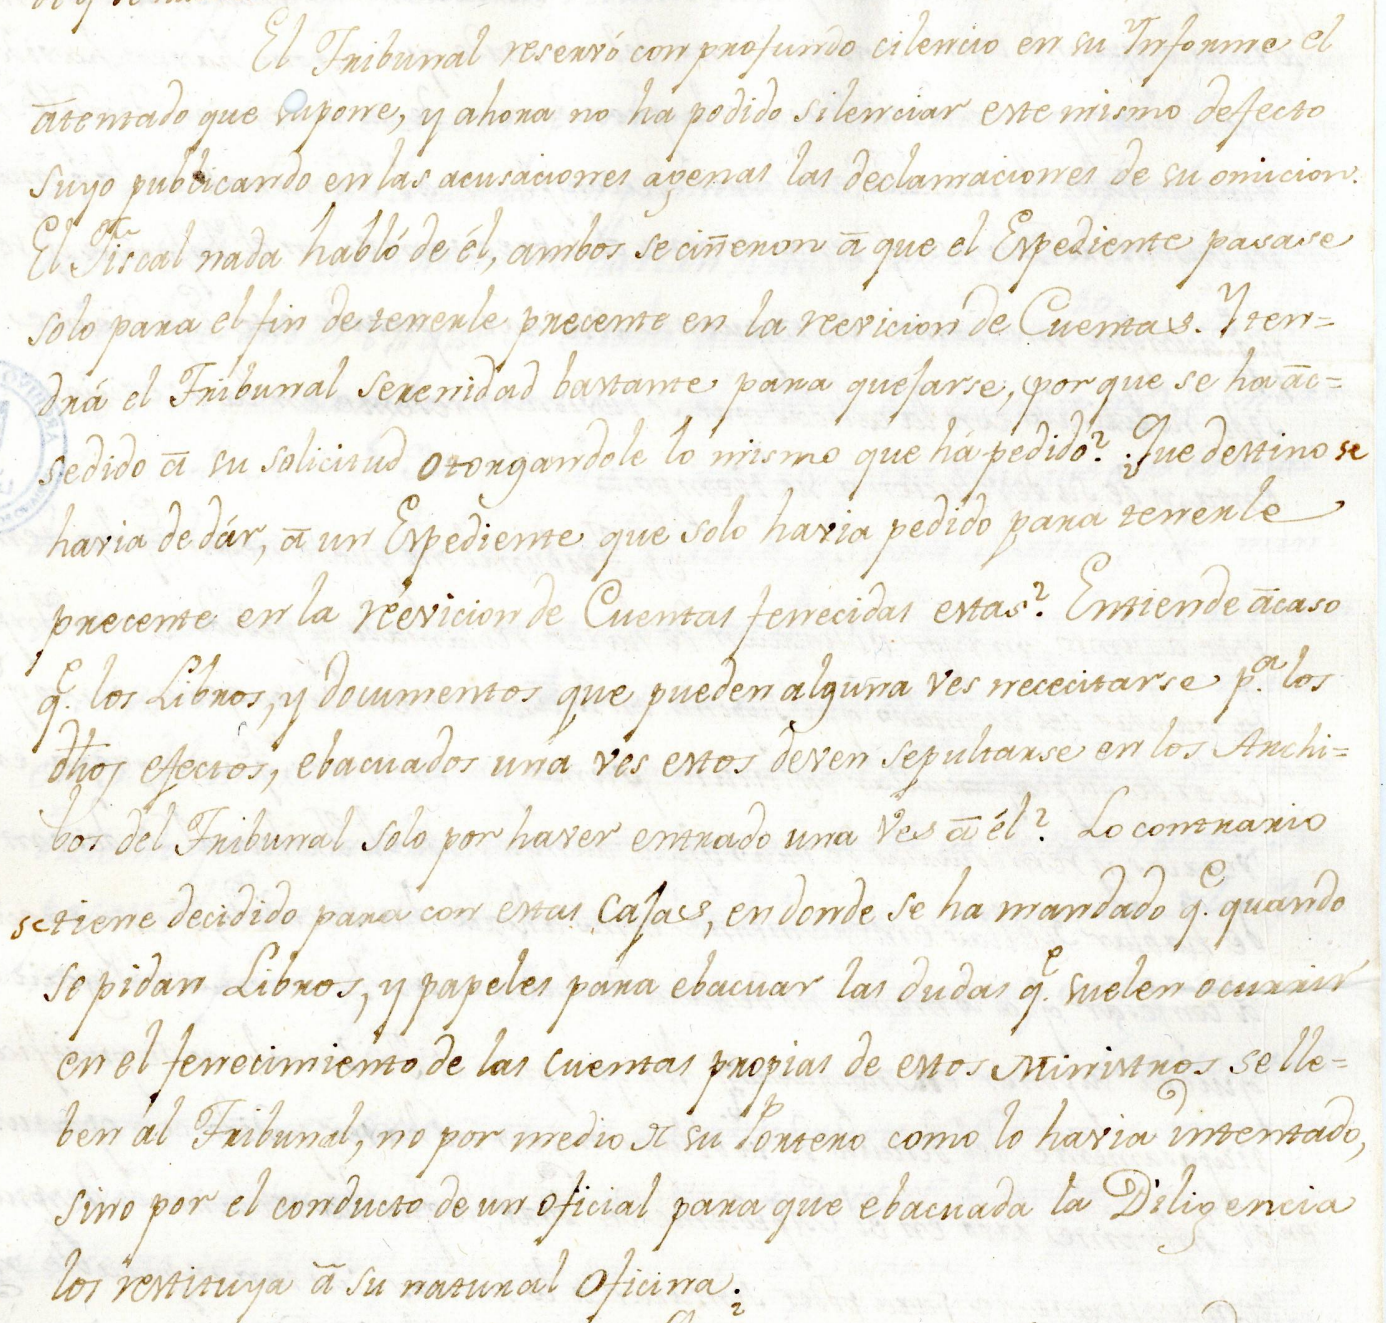 El Tribunal reservó con profundo cilencio en su Informe el
atentado que supone, y ahora no ha podido silenciar este mismo defecto
suyo publicando en las acusaciones agenas las declamaciones de su omicion.
El Fiscal nada habló de él, ambos se ciñeron ā que el Expediente pasase
solo para el fin de tenerle precente en la reevicion de Cuentas. Y ten=
drá el Tribunal serenidad bastante para quejarse, porque se ha āc=
sedido ā su solicitud otorgandole lo mismo que há pedido? ¿Que destino se
havia de dár, ā un Expediente que solo havia pedido para tenerle
precente en la réevicion de Cuentas fenecidas estas? Entiende ācaso
q.e los Libros, y documentos que pueden alguna ves nececitarse p.a los
dhos efectos, ebacuados una ves estos deven sepultarse en los Archi=
bos del Tribunal solo por haver entrado una ves ā él? Lo contrario
se tiene decidido para con estas Cajas, en donde se ha mandado q.e quando
se pidan Libros, y papeles para ebacuar las dudas q.e suelen ocurrir
en el fenecimiento de las cuentas propias de estos Ministros se lle=
ben al Tribunal, no por medio de su Portero como lo havia intentado,
sino por el conducto de un oficial para que ebacuada la Diligencia
los restituya ā su natural oficina.